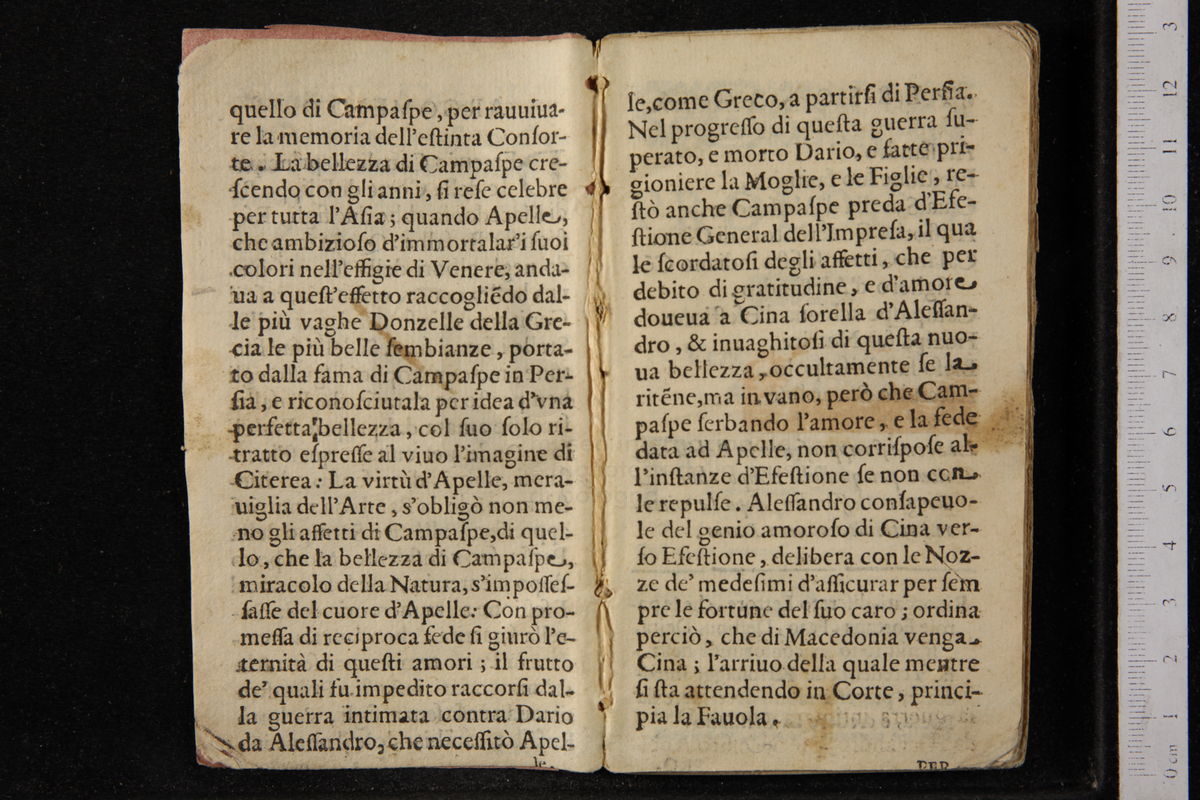 quello di Campaſpe, per rauuiua-
re la memoria dell'eſtinta Conſor-
te. La bellezza di Campaſpe cre-
ſcendo con gli anni, ſi reſe celebre
per tutta l'Aſia; quando Apelle,
che ambizioſo d'immortalar'i ſuoi
colori nell'effigie di Venere, anda-
ua a queſt'effetto raccogliēdo dal-
le più vaghe Donzelle della Gre-
cia le più belle ſembianze, porta-
to dalla fama di Campaſpe in Per-
ſia, e riconoſciutala per idea d'vna
perfetta bellezza, col ſuo ſolo ri-
tratto eſpreſſe al viuo l'imagine di
Citerea: La virtù d'Apelle, mera-
uiglia dell'Arte, s'obligò non me-
no gli affetti di Campaſpe, di quel-
lo, che la bellezza di Campaſpe,
miracolo della Natura, s'impoſſeſ-
ſaſſe del cuore d'Apelle: Con pro-
meſſa di reciproca fede ſi giurò l'e-
ternità di queſti amori; il frutto
de' quali fu impedito raccorſi dal-
la guerra intimata contra Dario
da Aleſſandro, che neceſſitò Apel-
le,
le, come Greco, a partirſi di Perſia.
Nel progreſſo di queſta guerra ſu-
perato, e morto Dario, e fatte pri-
gioniere la Moglie, e le Figlie, re-
ſtò anche Campaſpe preda d'Efe-
ſtione General dell'Impreſa, il qua
le ſcordatoſi degli affetti, che per
debito di gratitudine, e d'amore
doueua a Cina ſorella d'Aleſſan-
dro, & inuaghitoſi di queſta nuo-
ua bellezza, occultamente ſe la
ritēne, ma in vano, però che Cam-
paſpe ſerbando l'amore, e la fede
data ad Apelle, non corriſpoſe al-
l'inſtanze d'Efeſtione ſe non con
le repulſe. Aleſſandro conſapeuo-
le del genio amoroſo di Cina ver-
ſo Efeſtione, delibera con le Noz-
ze de' medeſimi d'aſſicurar per ſem
pre le fortune del ſuo caro; ordina
perciò, che di Macedonia venga
Cina; l'arriuo della quale mentre
ſi ſta attendendo in Corte, princi-
pia la Fauola.
PER